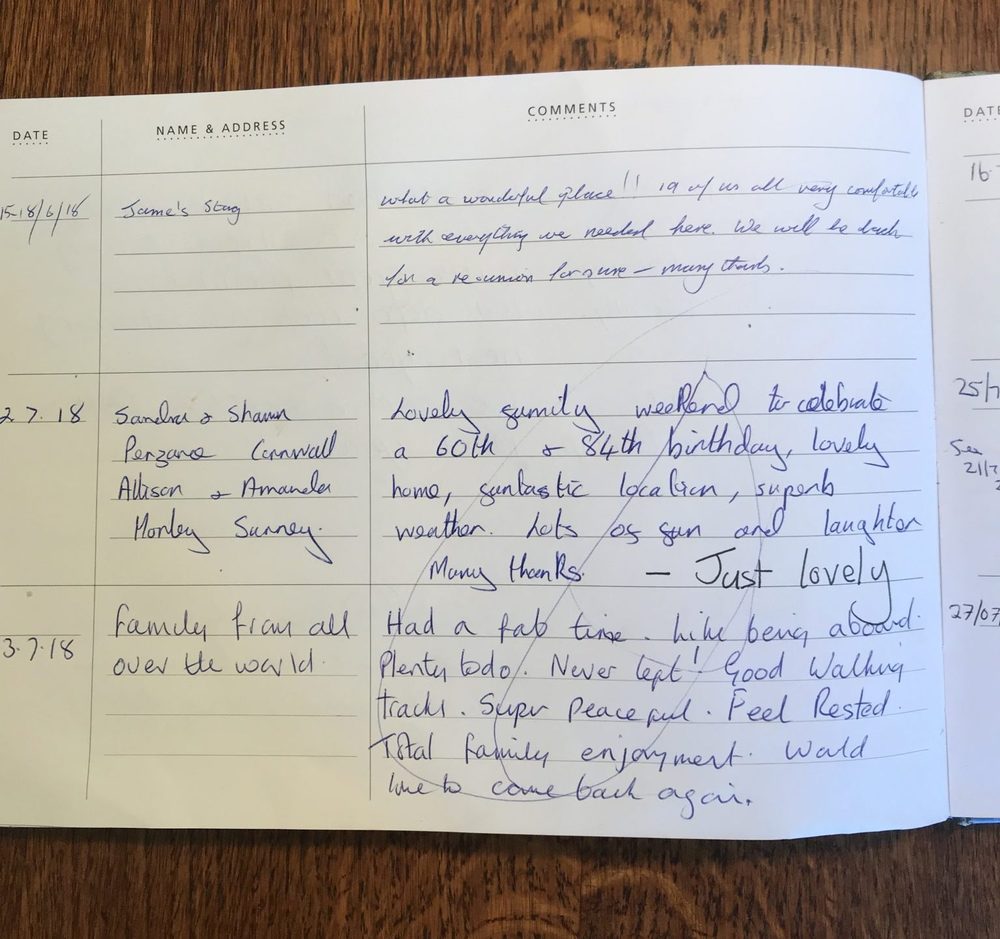 DATE NAME & ADDRESS COMMENTS
15-18/6/18 Jame's Stag what a wonderful place!! 19 of us all very comfortable
with everything we needed here. We will be back
for a re-union for sure – many thanks.
2 7. 18 Sandra & Shaun Lovely family weekend to celebrate
Penzance Cornwall a 60th & 84th birthday, lovely
Allison & Amanda home, fantastic location, superb
Horley Surrey. weather. Lots of fun and laughter
Many thanks. – Just lovely
Family from all Had a fab time. Like being aboard.
3.7.18 over the world. Plenty to do. Never left! Good Walking
tracks. Super Peaceful. Feel Rested.
Total family enjoyment. Would
love to come back again.
DATE
16-
25/7
See
21/7
2
27/07/